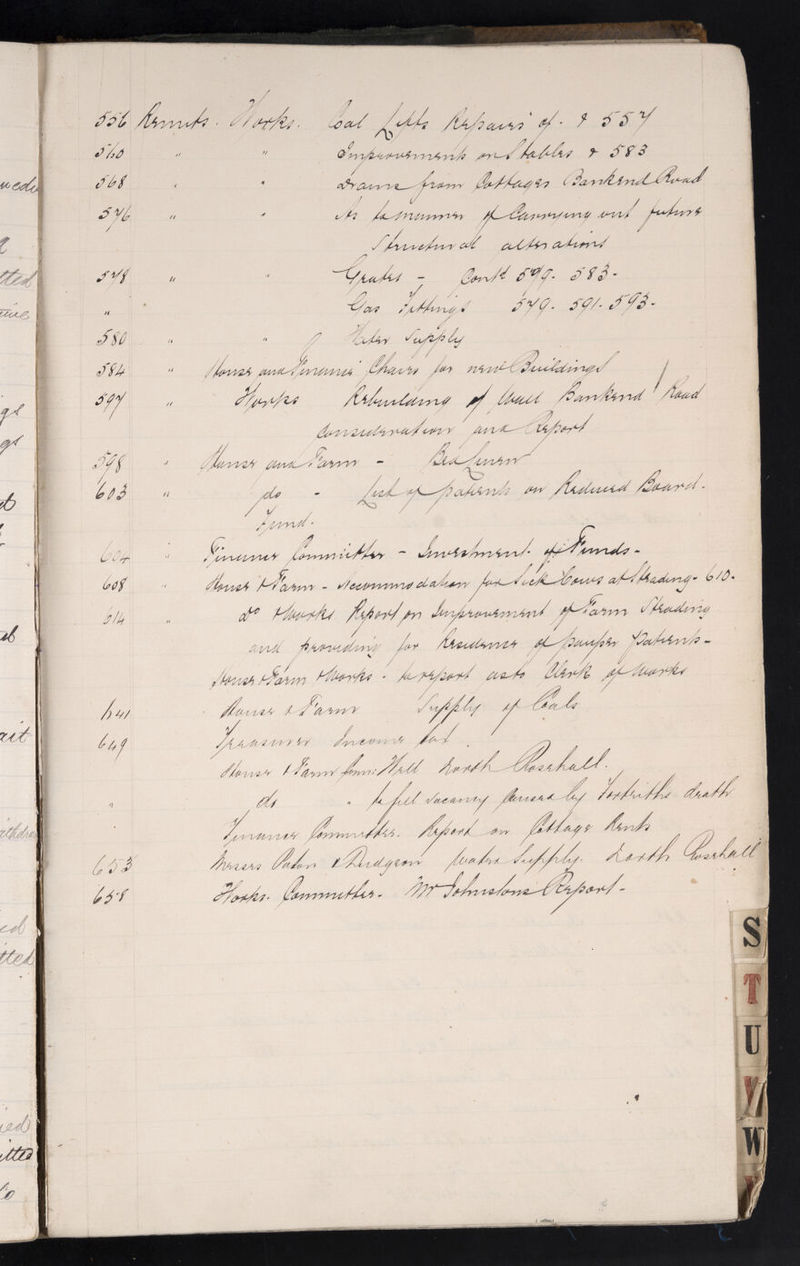 556 Remits. Works. Coal Lifts Repairs of. & 557
560 " " Improvements on Stables & 583
568 " " Drains from Cottages Bankend Road
576 " " As to manner of Carrying out future
Structural alterations
578 " " Grates - Contd 579. 583.
" " Gas Fittings 579. 591. 593.
580 " " Water Supply
584 " House and Finance Chairs for new Buildings
597 " Works Rebuilding of Wall Bankend Road
Consideration and Report
598 " House and Farm - Bed Linen
603 " do - List of patients on Reduced Board.
Fund.
604 " Finance Committee - Investment of Funds -
608 " House & Farm - Accommodation for Sick Cows at Steading. 610.
614 " Do & Works Report on Improvement of Farm Steading
and providing for Residence of pauper patients -
House & Farm & Works. to report as to Clerk of Works
641 House & Farm Supply of Coals
649 Treasurer Income tax
House & Farm Comm: Well North Rosehall.
" do " to fill vacancy Caused by death
Finance Committee. Report on Cottage Rents
653 Messrs & Water Supply. North Rosehall
658 Works. Committee. Mr Johnstons Report -
S
T
U
V
W